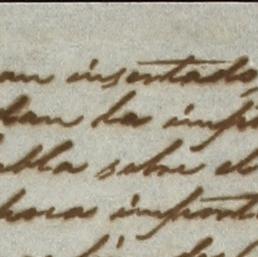 an insertado,
dan la impr
abla sobre el
hora import